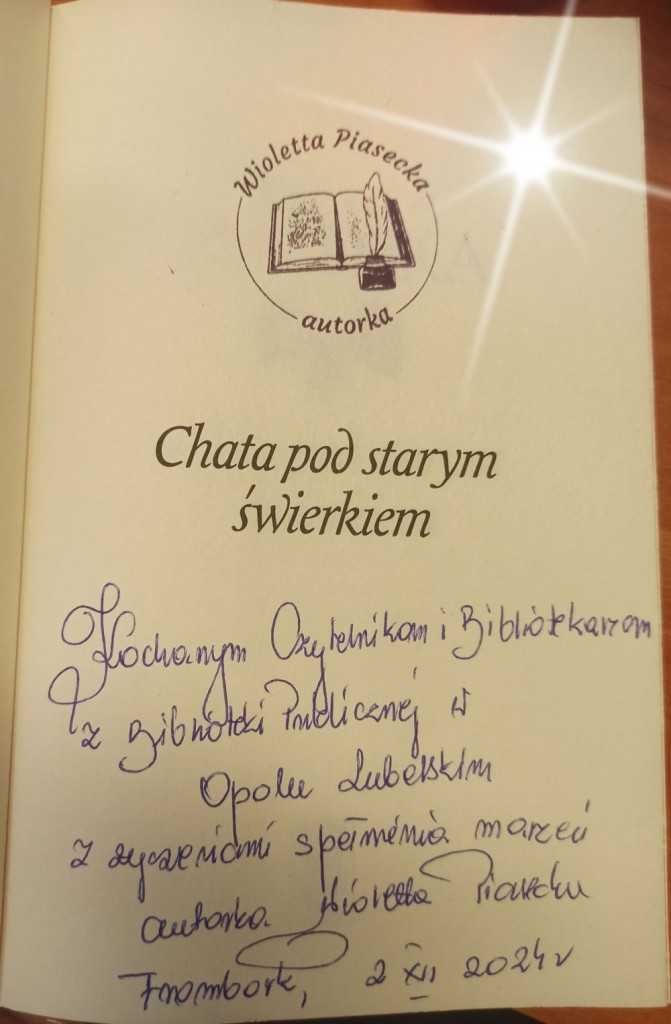 Wioletta Piasecka
autorka
Chata pod starym
świerkiem
Kochanym Czytelnikom i Bibliotekarzom
z Biblioteki Publicznej w
Opolu Lubelskim
z życzeniami spełnienia marzeń
autorka Wioletta Piasecka
Frombork, 2 XII 2024 r